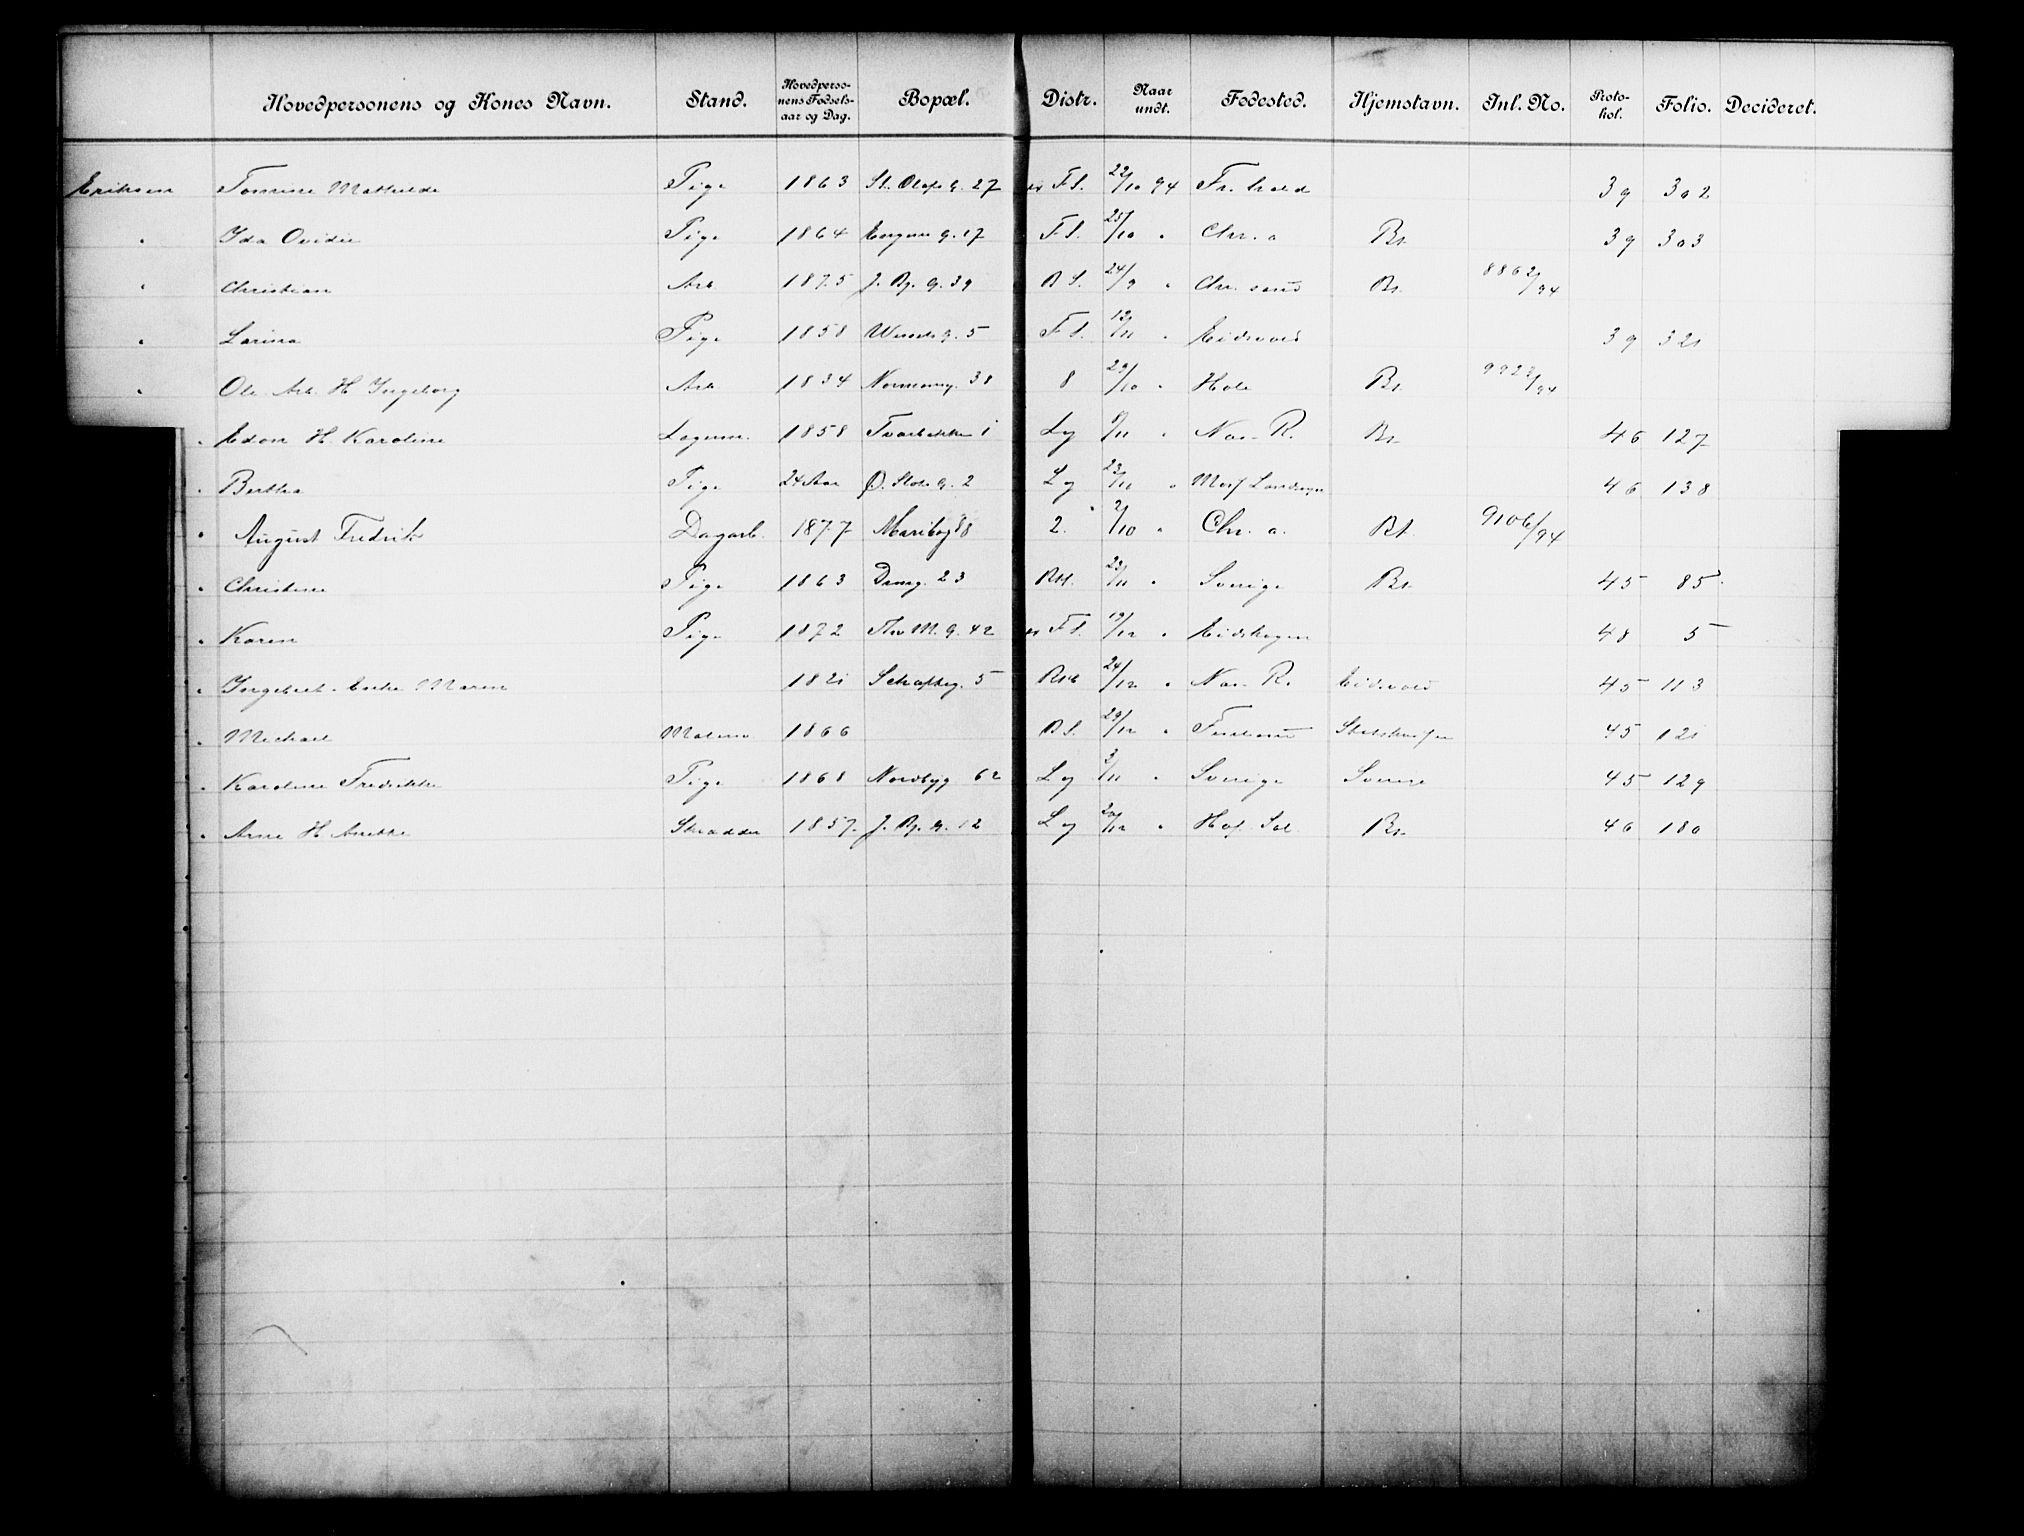 Hovedpersonens og Kones Navn. Stand. Hovedpersonens Fødselsaar og Dag. Bopæl. Distr. Naar undt. Fødested. Hjemstavn. Inl. No. Protokol. Folio. Decideret.
Eriksen Tomine Mathilde Pige 1863 St. Olafs g. 27 F S. 22/10 94 Fr. hald 39 302
" Ida Ovidie Pige 1864 g. 17 F S. 25/10 " Chr. a Bt. 39 303
" Christian Arb 1875 J. Bj. g. 39 B S. 24/9 " Chr. sand Bt. 8862/94
" Larina Pige 1858 Wessels g. 5 F S. 12/11 " Eidsvold 39 321
" Ole Arb. H Ingeborg Arb 1834 Normanng. 38 8 29/10 " Hole Bt. 9923/94
" Edon H. Karoline Lagerm. 1858 Tværbakken 1 Lg 9/11 " Næs R. Bt. 46 127
" Berthea Pige 24 Aar Ø. Slots g. 2 Lg 23/11 " Landsogn 46 138
" August Fredrik Dagarb. 1877 Maribog 88 2. 2/10 " Chr. a. Bt. 9106/94
" Christine Pige 1863 Drmg. 23 RH. 23/11 " Sverige Bt. 45 85
" Karen Pige 1872 Thv M. g. 42 F S. 19/12 " Eidskogen 48 5
" Ingebret. Enke Maren 1821 Schaftteg. 5 RH 24/12 " Næs R. Eidsvold 45 113
" Michael Matros 1866 B S. 29/12 " 45 121
" Karoline Fredrikke Pige 1868 Nordbyg 62 Lg 3/11 " Sverige Sverre 45 129
" Arne H. Anethe Skrædder 1857 J. Bj. g. 12 Lg 20/12 " Hof Sol. Bt. 46 180